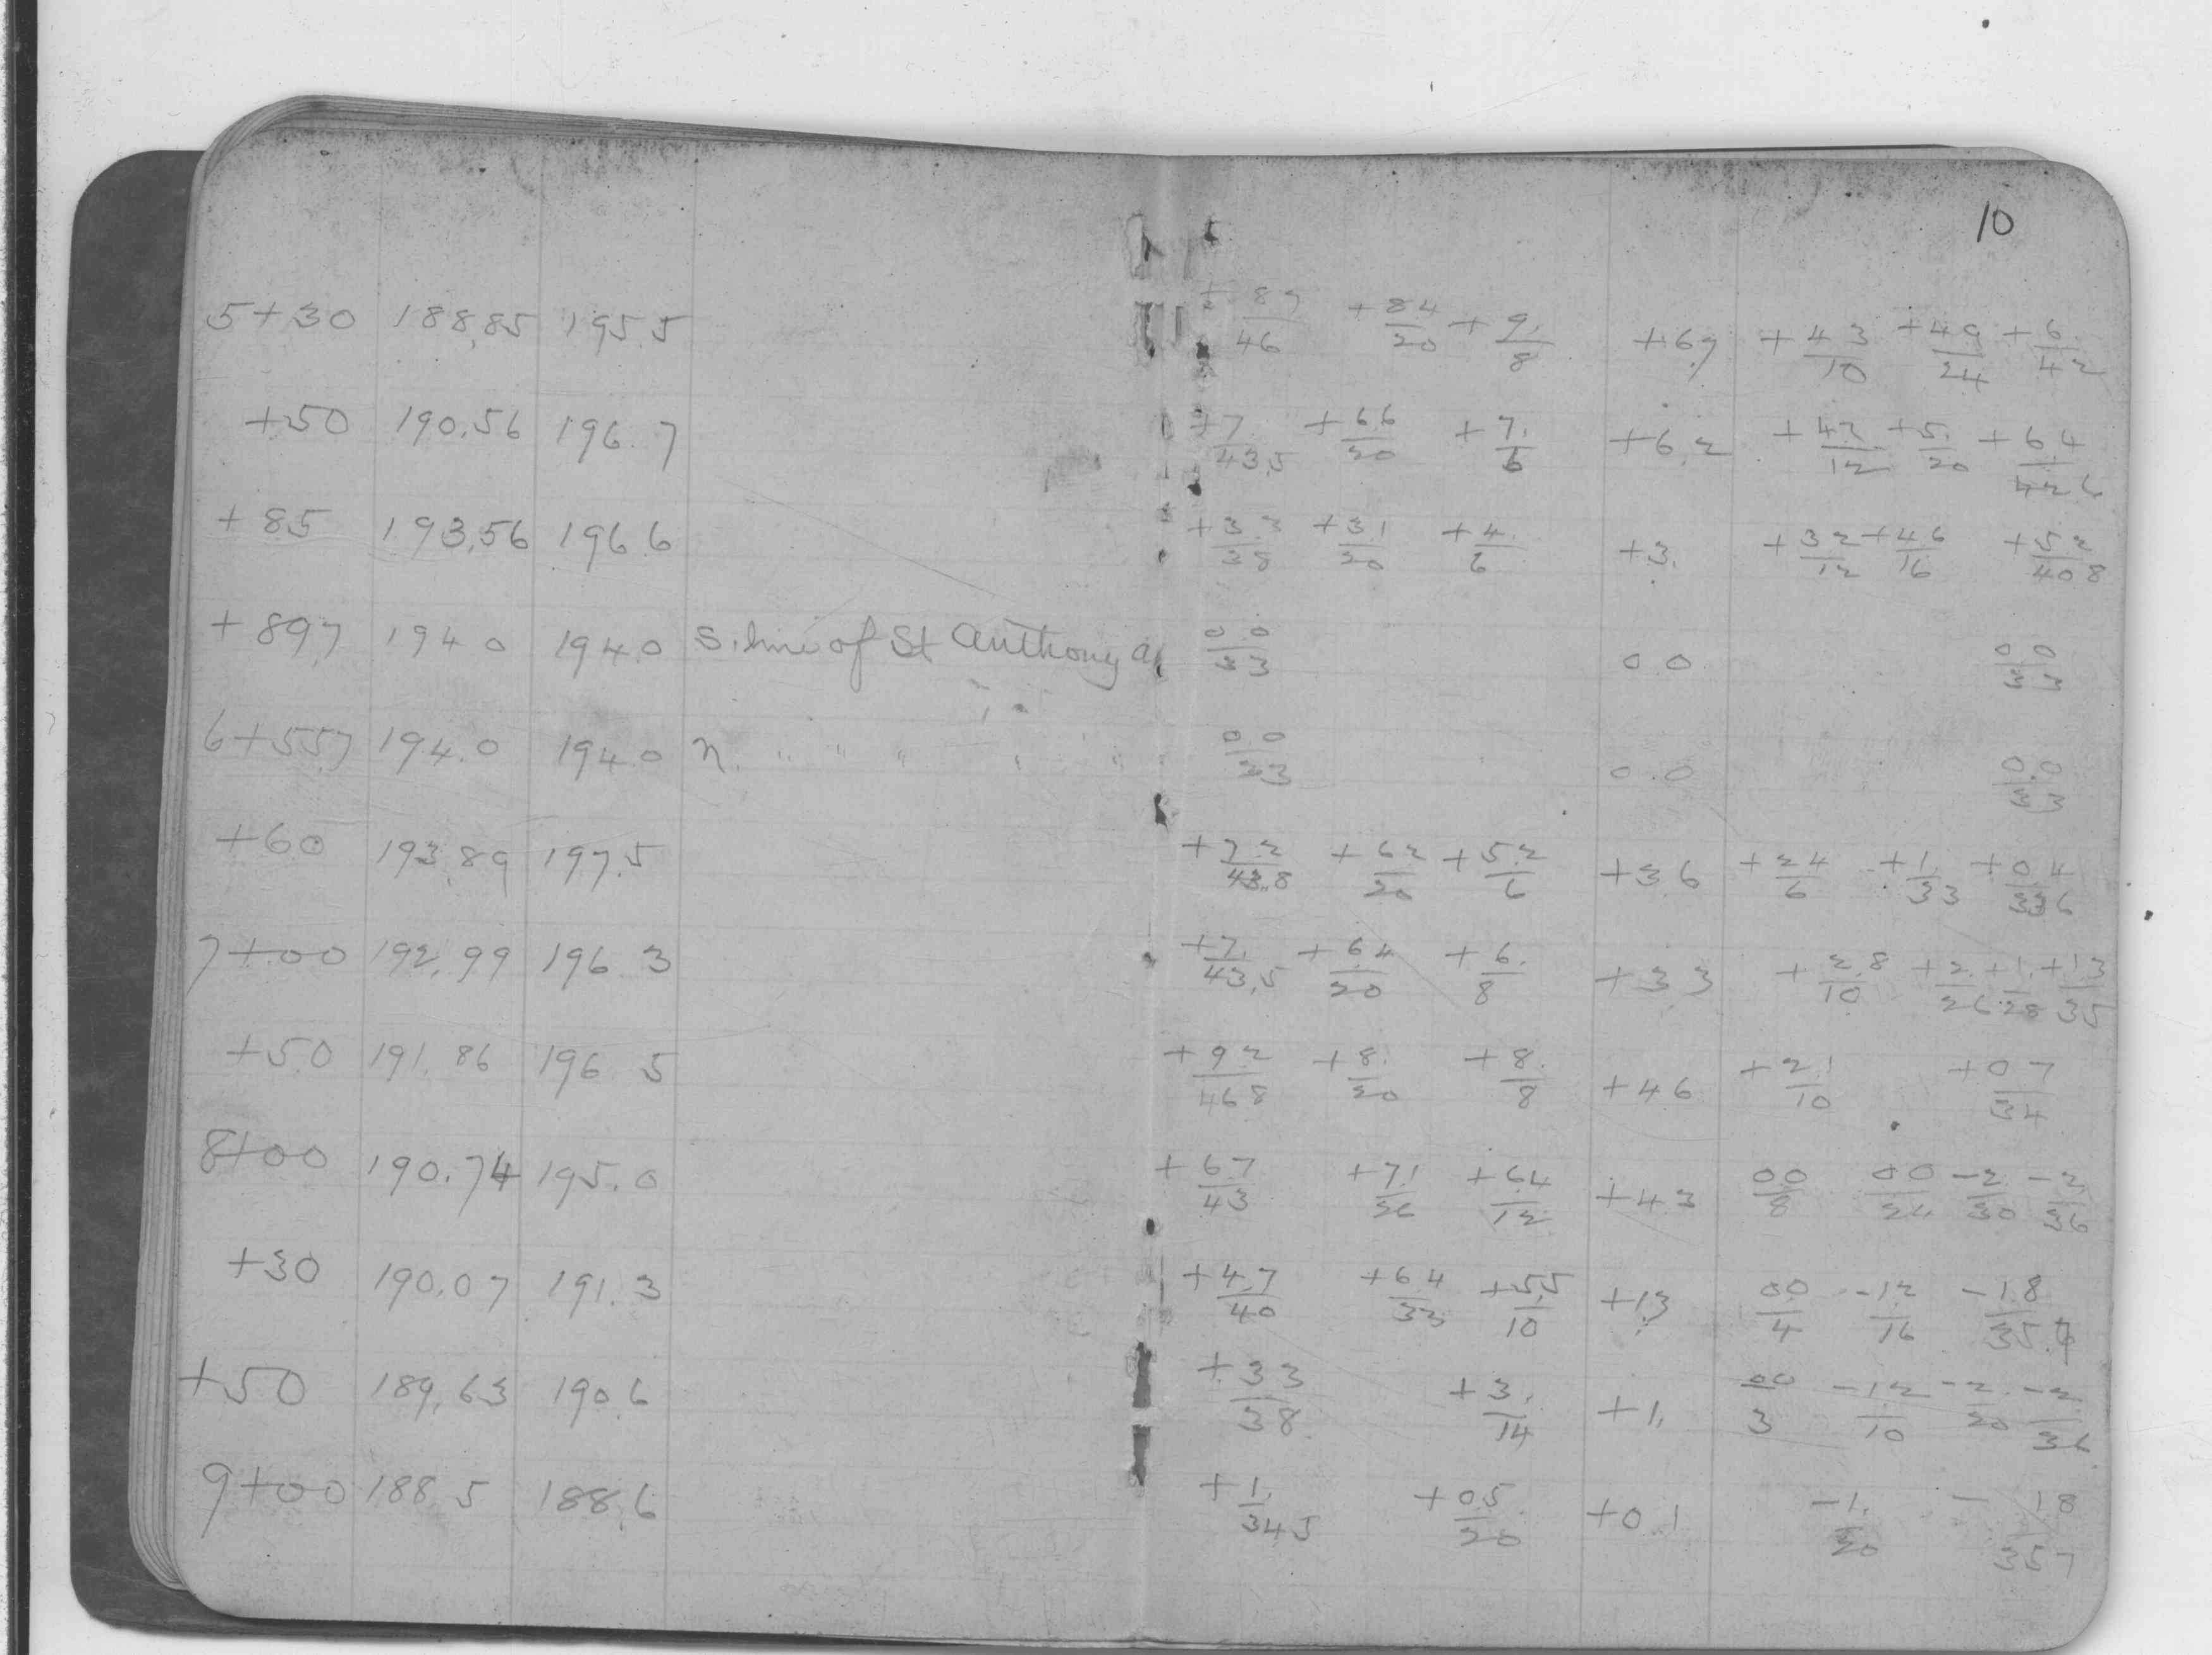 10
5+30 188.85 195.5 +8.9/46 +8.4/20 +9./8 +6.7 +4.3/10 +4.9/24 +6./42
+50 190.56 196.7 +7./43.5 +6.6/20 +7./6 +6.2 +4.2/12 +5./20 +6.4/42.6
+85 193.56 196.6 +3.3/38 +3.1/20 +4./6 +3. +3.2/12 +4.6/16 +5.2/40.8
+89.7 194.0 194.0 S. line of St Anthony a 0.0/33 0.0 0.0/33
6+55.7 194.0 194.0 N. " " " " " " 0.0/33 0.0 0.0/33
+60 193.89 197.5 +7.2/43.8 +6.2/20 +5.2/6 +3.6 +2.4/6 +1./33 +0.4/33.6
7+00 192.99 196.3 +7./43.5 +6.4/20 +6./8 +3.3 +2.8/10 +2./26 +1./28 +1.3/35
+50 191.86 196.5 +9.2/46.8 +8./20 +8./8 +4.6 +2.1/10 +0.7/34
8+00 190.74 195.0 +6.7/43 +7.1/26 +6.4/12 +4.3 0.0/8 0.0/24 -2./30 -2./36
+30 190.07 191.3 +4.7/40 +6.4/33 +5.5/10 +1.3 0.0/4 -1.2/16 -1.8/35.7
+50 189.63 190.6 +3.3/38 +3./14 +1. 0.0/3 -1.2/10 -2./20 -2./36
9+00 188.5 188.6 +1./34.5 +0.5/20 +0.1 -1./20 -1.8/35.7